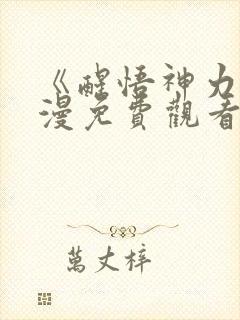 《醒悟神力
漫免費觀看
萬丈梓